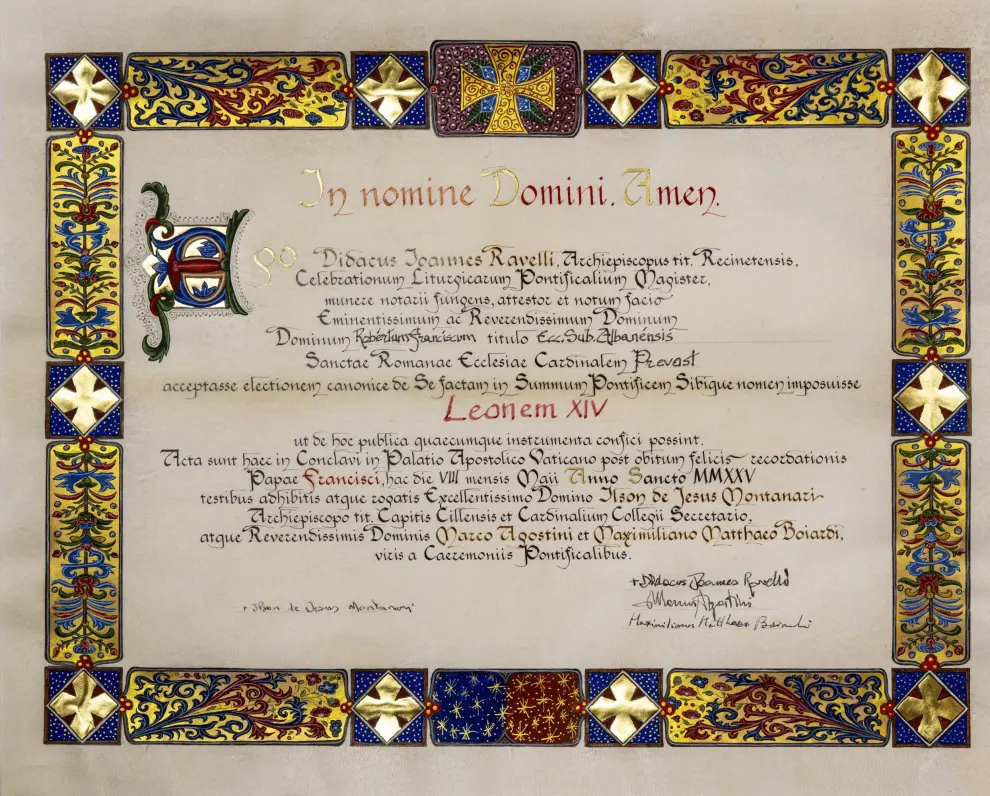 In nomine Domini. Amen.
Ego Didacus Ioannes Ravelli, Archiepiscopus tit. Recinetensis,
Celebrationum Liturgicarum Pontificalium Magister,
munere notarii fungens, attestor et notum facio
Eminentissimum ac Reverendissimum Dominum
Dominum Robertum Franciscum titulo Ecc. Sub. Albanénsis
Sanctae Romanae Ecclesiae Cardinalem Prevost
acceptasse electionem canonice de Se factam in Summum Pontificem Sibique nomen imposuisse
Leonem XIV
ut de hoc publica quaecumque instrumenta confici possint.
Acta sunt haec in Conclavi in Palatio Apostolico Vaticano post obitum felicis recordationis
Papae Francisci, hac die VIII mensis Maii Anno Sancto MMXXV
testibus adhibitis atque rogatis Excellentissimo Domino Ilson de Jesus Montanari
Archiepiscopo tit. Capitis Cillensis et Cardinalium Collegii Secretario,
atque Reverendissimis Dominis Marco Agostini et Maximiliano Matthaeo Boiardi,
viris a Caeremoniis Pontificalibus.
+ Didacus Joannes Ravelli
+ Ilson de Jesus Montanari
Marcus Agostini
Maximilianus Matthaeus Boiardi